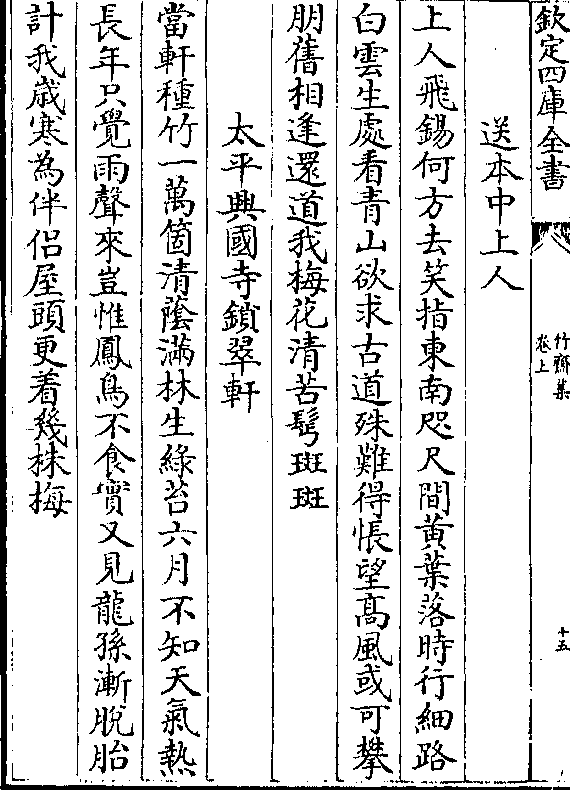 欽定四庫全書
竹齋集
卷上
十五
送本中上人
上人飛錫何方去笑指東南咫尺間黃葉落時行細路
白雲生處看青山欲求古道殊難得悵望髙風或可攀
朋舊相逢還道我梅花清苦鬂斑斑
太平興國寺鎖翠軒
當軒種竹一萬箇清蔭滿林生綠苔六月不知天氣熱
長年只覺雨聲來豈惟鳳鳥不食實又見龍孫漸脫胎
計我歲寒為伴侣屋頭更着幾株梅